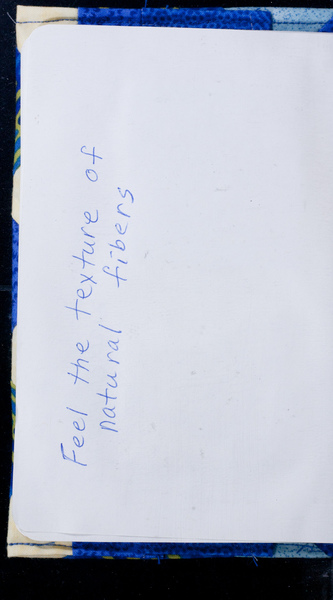 Feel the texture of
natural fibers